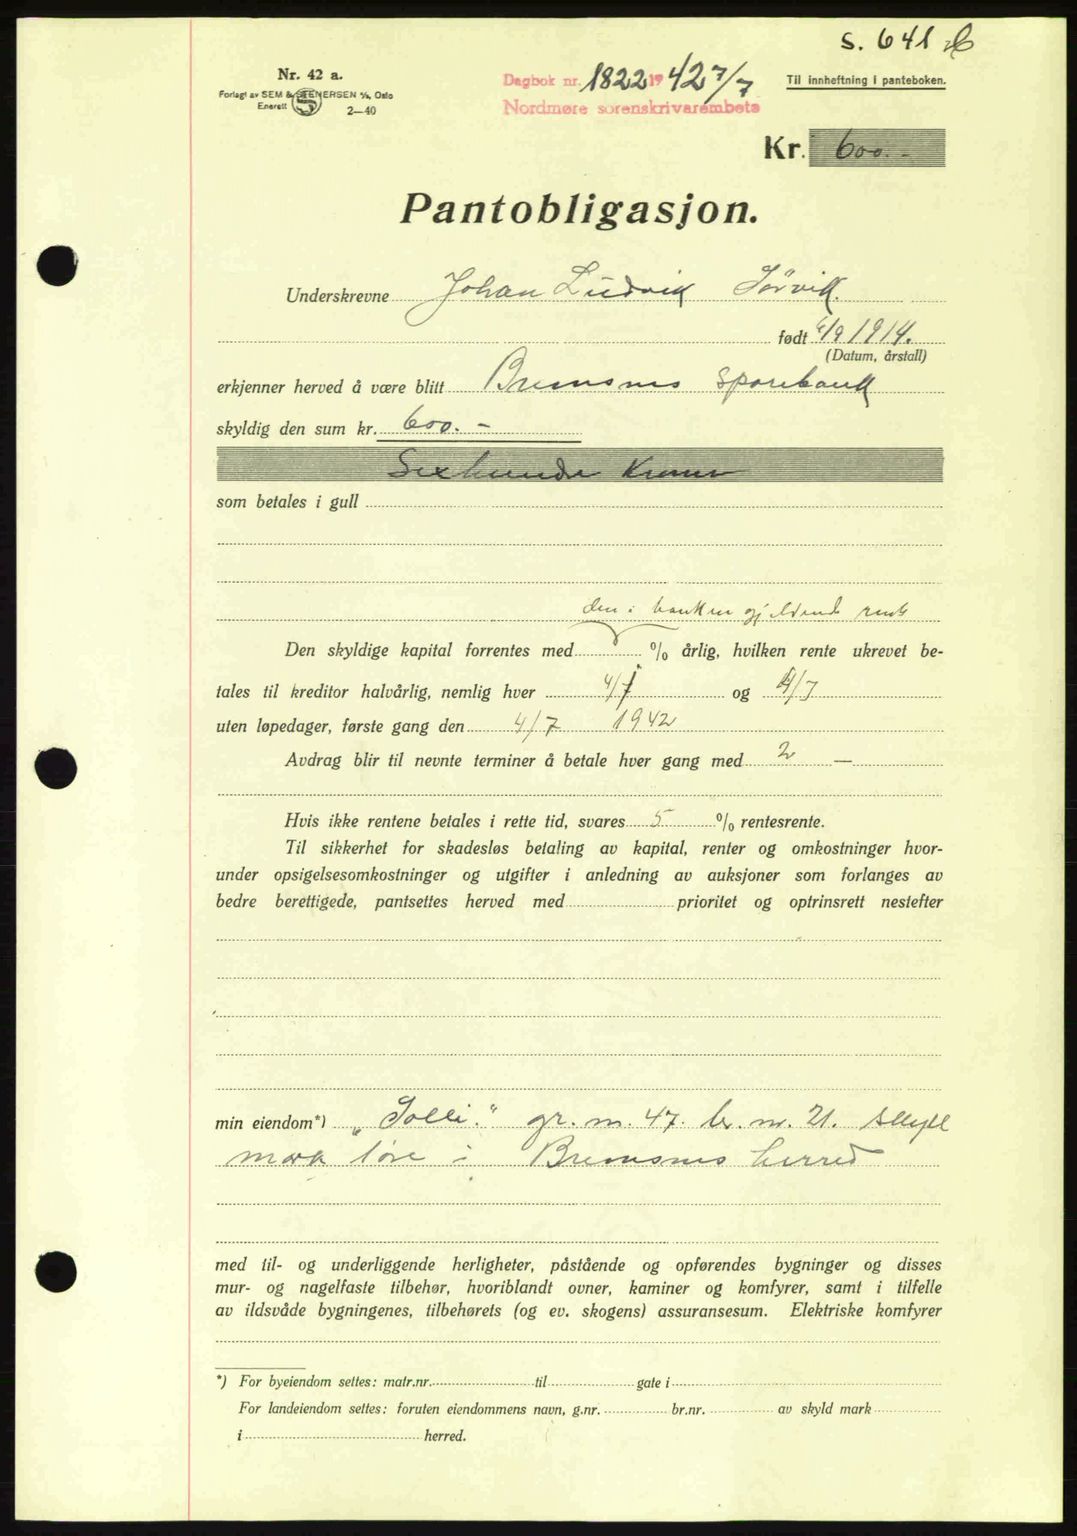 S. 641
Nr. 42 a.
Forlagt av SEM & STENERSEN A/S, Oslo
Enerett
2—40
Dagbok nr. 1822 1942 7/7
Nordmøre sorenskrivarembete
Til innheftning i panteboken.
Kr. 600.-
Pantobligasjon.
Underskrevne Johan Ludvik Sørvik.
født 4/9 1914.
(Datum, årstall)
erkjenner herved å være blitt Bremsnes Sparebank
skyldig den sum kr. 600.-
Sexhundre Kroner
som betales i gull
den i banken gjeldende rente
Den skyldige kapital forrentes med % årlig, hvilken rente ukrevet be-
tales til kreditor halvårlig, nemlig hver 4/1 og 4/7
uten løpedager, første gang den 4/7 1942
Avdrag blir til nevnte terminer å betale hver gang med 2 —
Hvis ikke rentene betales i rette tid, svares 5 % rentesrente.
Til sikkerhet for skadesløs betaling av kapital, renter og omkostninger hvor-
under opsigelsesomkostninger og utgifter i anledning av auksjoner som forlanges av
bedre berettigede, pantsettes herved med prioritet og optrinsrett nestefter
min eiendom*) „Solli." gr. nr. 47. br. nr. 21. skyld
mark i Bremsnes herred
med til- og underliggende herligheter, påstående og opførendes bygninger og disses
mur- og nagelfaste tilbehør, hvoriblandt ovner, kaminer og komfyrer, samt i tilfelle
av ildsvåde bygningenes, tilbehørets (og ev. skogens) assuransesum. Elektriske komfyrer
*) For byeiendom settes: matr.nr. til gate i
For landeiendom settes: foruten eiendommens navn, g.nr. br.nr. av skyld mark
i herred.